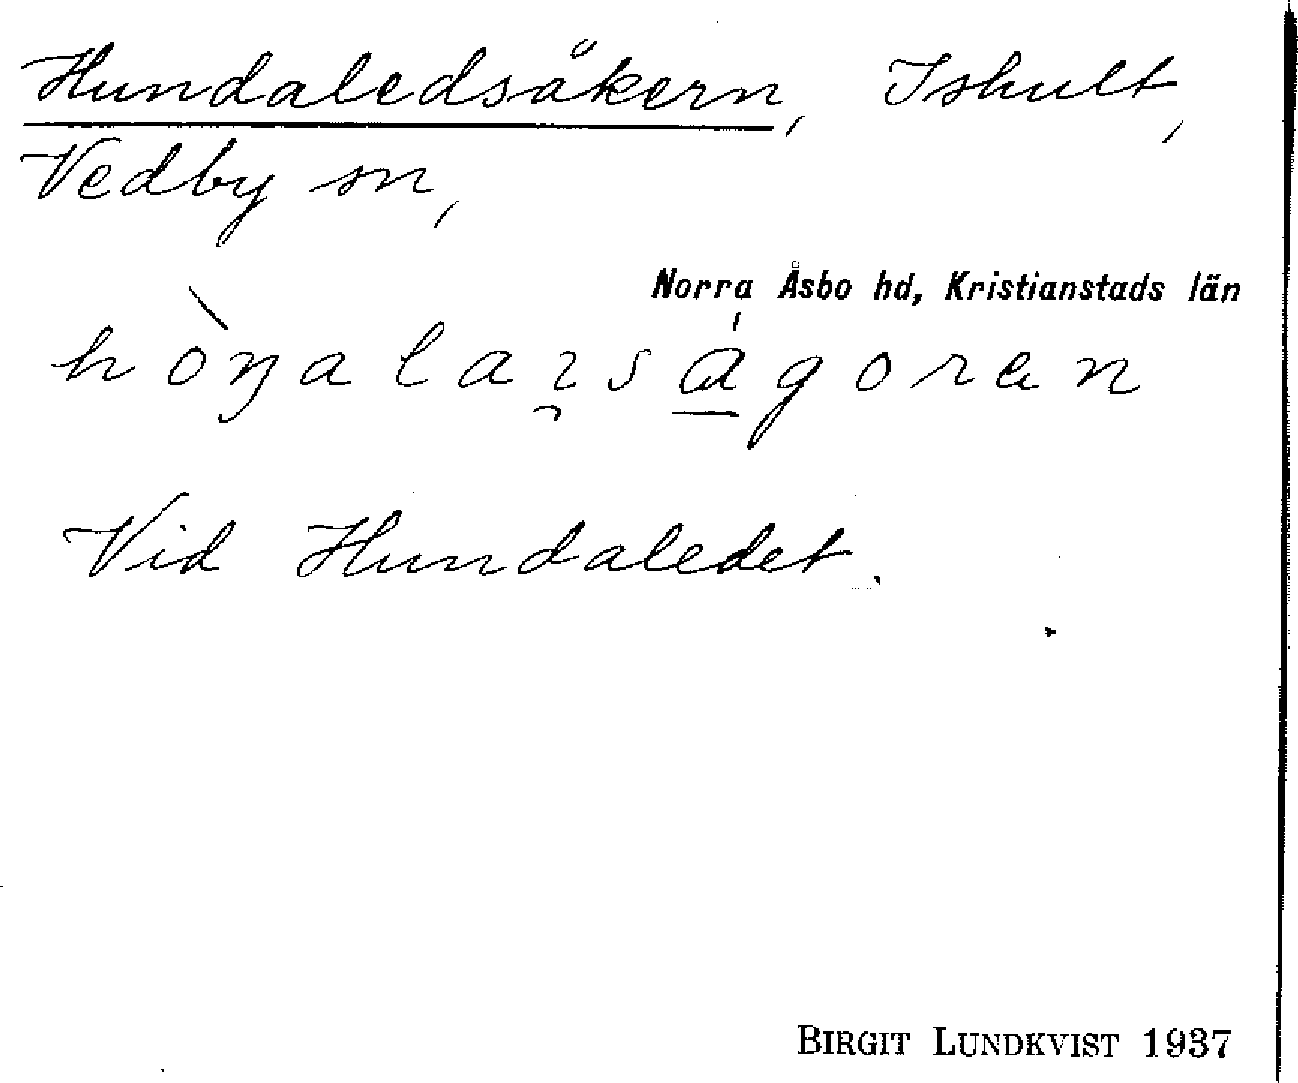 Hundaledsåkern, Ishult,
Vedby sn,
Norra Åsbo hd, Kristianstads län
Vid Hundaledet.
BIRGIT LUNDKVIST 1937